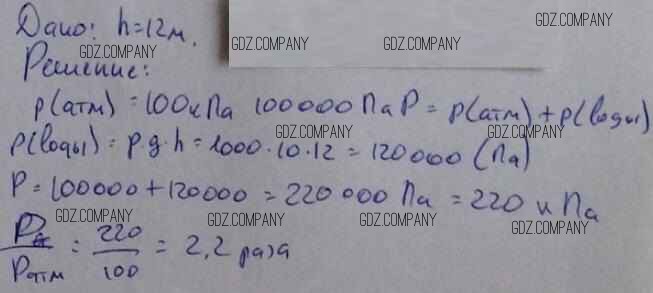 Дано: h=12м.
GDZ.COMPANY GDZ.COMPANY GDZ.COMPANY GDZ.COMPANY
Решение:
p(атм) = 100кПа 100000 Па P = p(атм) + p(воды)
GDZ.COMPANY GDZ.COMPANY GDZ.COMPANY
p(воды) = p g·h = 1000·10·12 = 120000 (Па)
P = 100000 + 120000 = 220 000 Па = 220 кПа
GDZ.COMPANY GDZ.COMPANY GDZ.COMPANY GDZ.COMPANY
P / Pатм = 220 / 100 = 2,2 раза